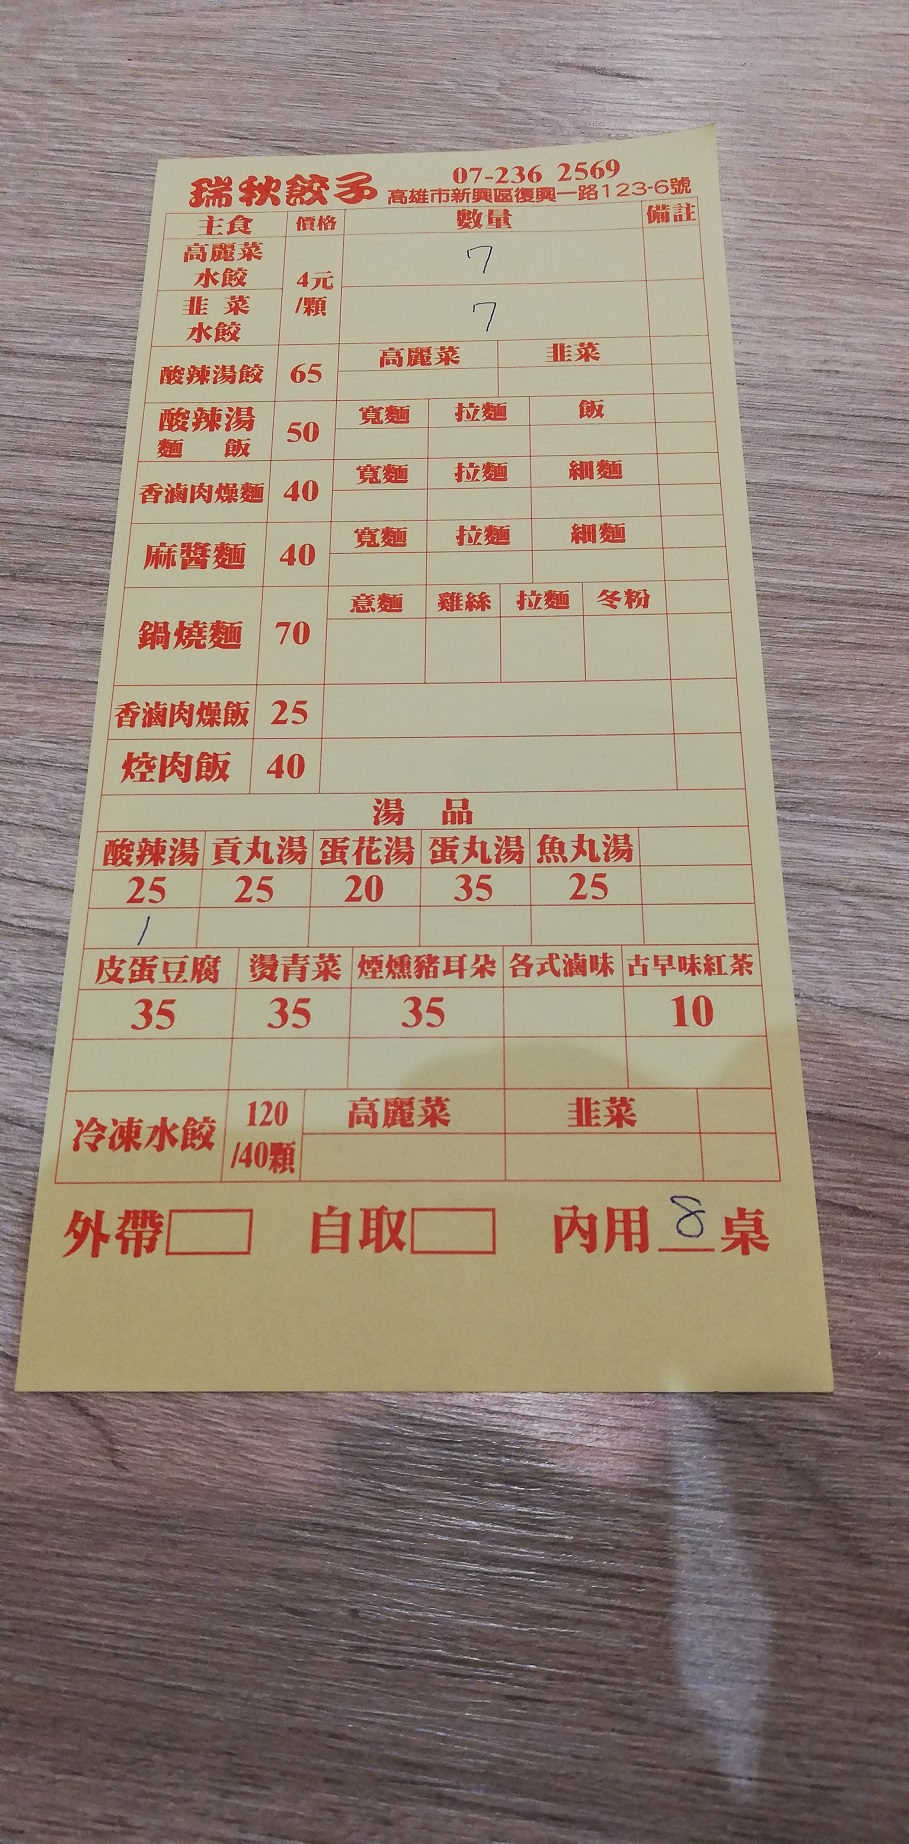 瑞秋餃子 07-236 2569
高雄市新興區復興一路123-6號
主食 價格 數量 備註
高麗菜水餃 4元/顆 7
韭菜水餃 7
酸辣湯餃 65 高麗菜 韭菜
酸辣湯麵 飯 50 寬麵 拉麵 飯
香滷肉燥麵 40 寬麵 拉麵 細麵
麻醬麵 40 寬麵 拉麵 細麵
鍋燒麵 70 意麵 雞絲 拉麵 冬粉
香滷肉燥飯 25
焢肉飯 40
湯 品
酸辣湯 貢丸湯 蛋花湯 蛋丸湯 魚丸湯
25 25 20 35 25
1
皮蛋豆腐 燙青菜 煙燻豬耳朵 各式滷味 古早味紅茶
35 35 35 10
冷凍水餃 120/40顆 高麗菜 韭菜
外帶 自取 內用 8 桌